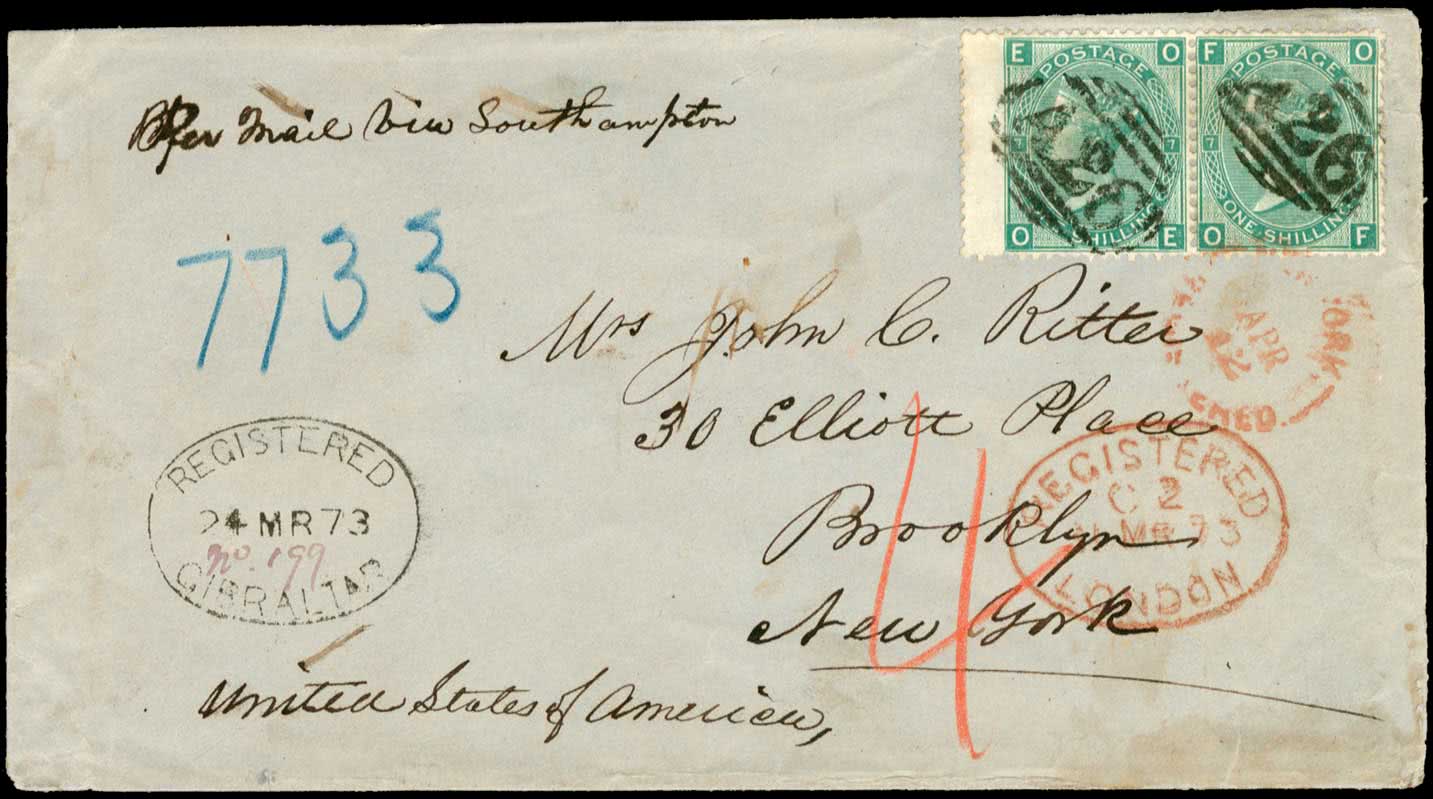 Per Mail via Southampton
E POSTAGE O
7 7
O SHILLING E
F POSTAGE O
7 7
O ONE SHILLING F
A26
A26
7733
Mrs John C. Ritter
30 Elliott Place
Brooklyn
New York
United States of America,
4
REGISTERED
24 MR 73
No. 199
GIBRALTAR
YORK
APR
12
REGISTERED
C 2
MR 73
LONDON